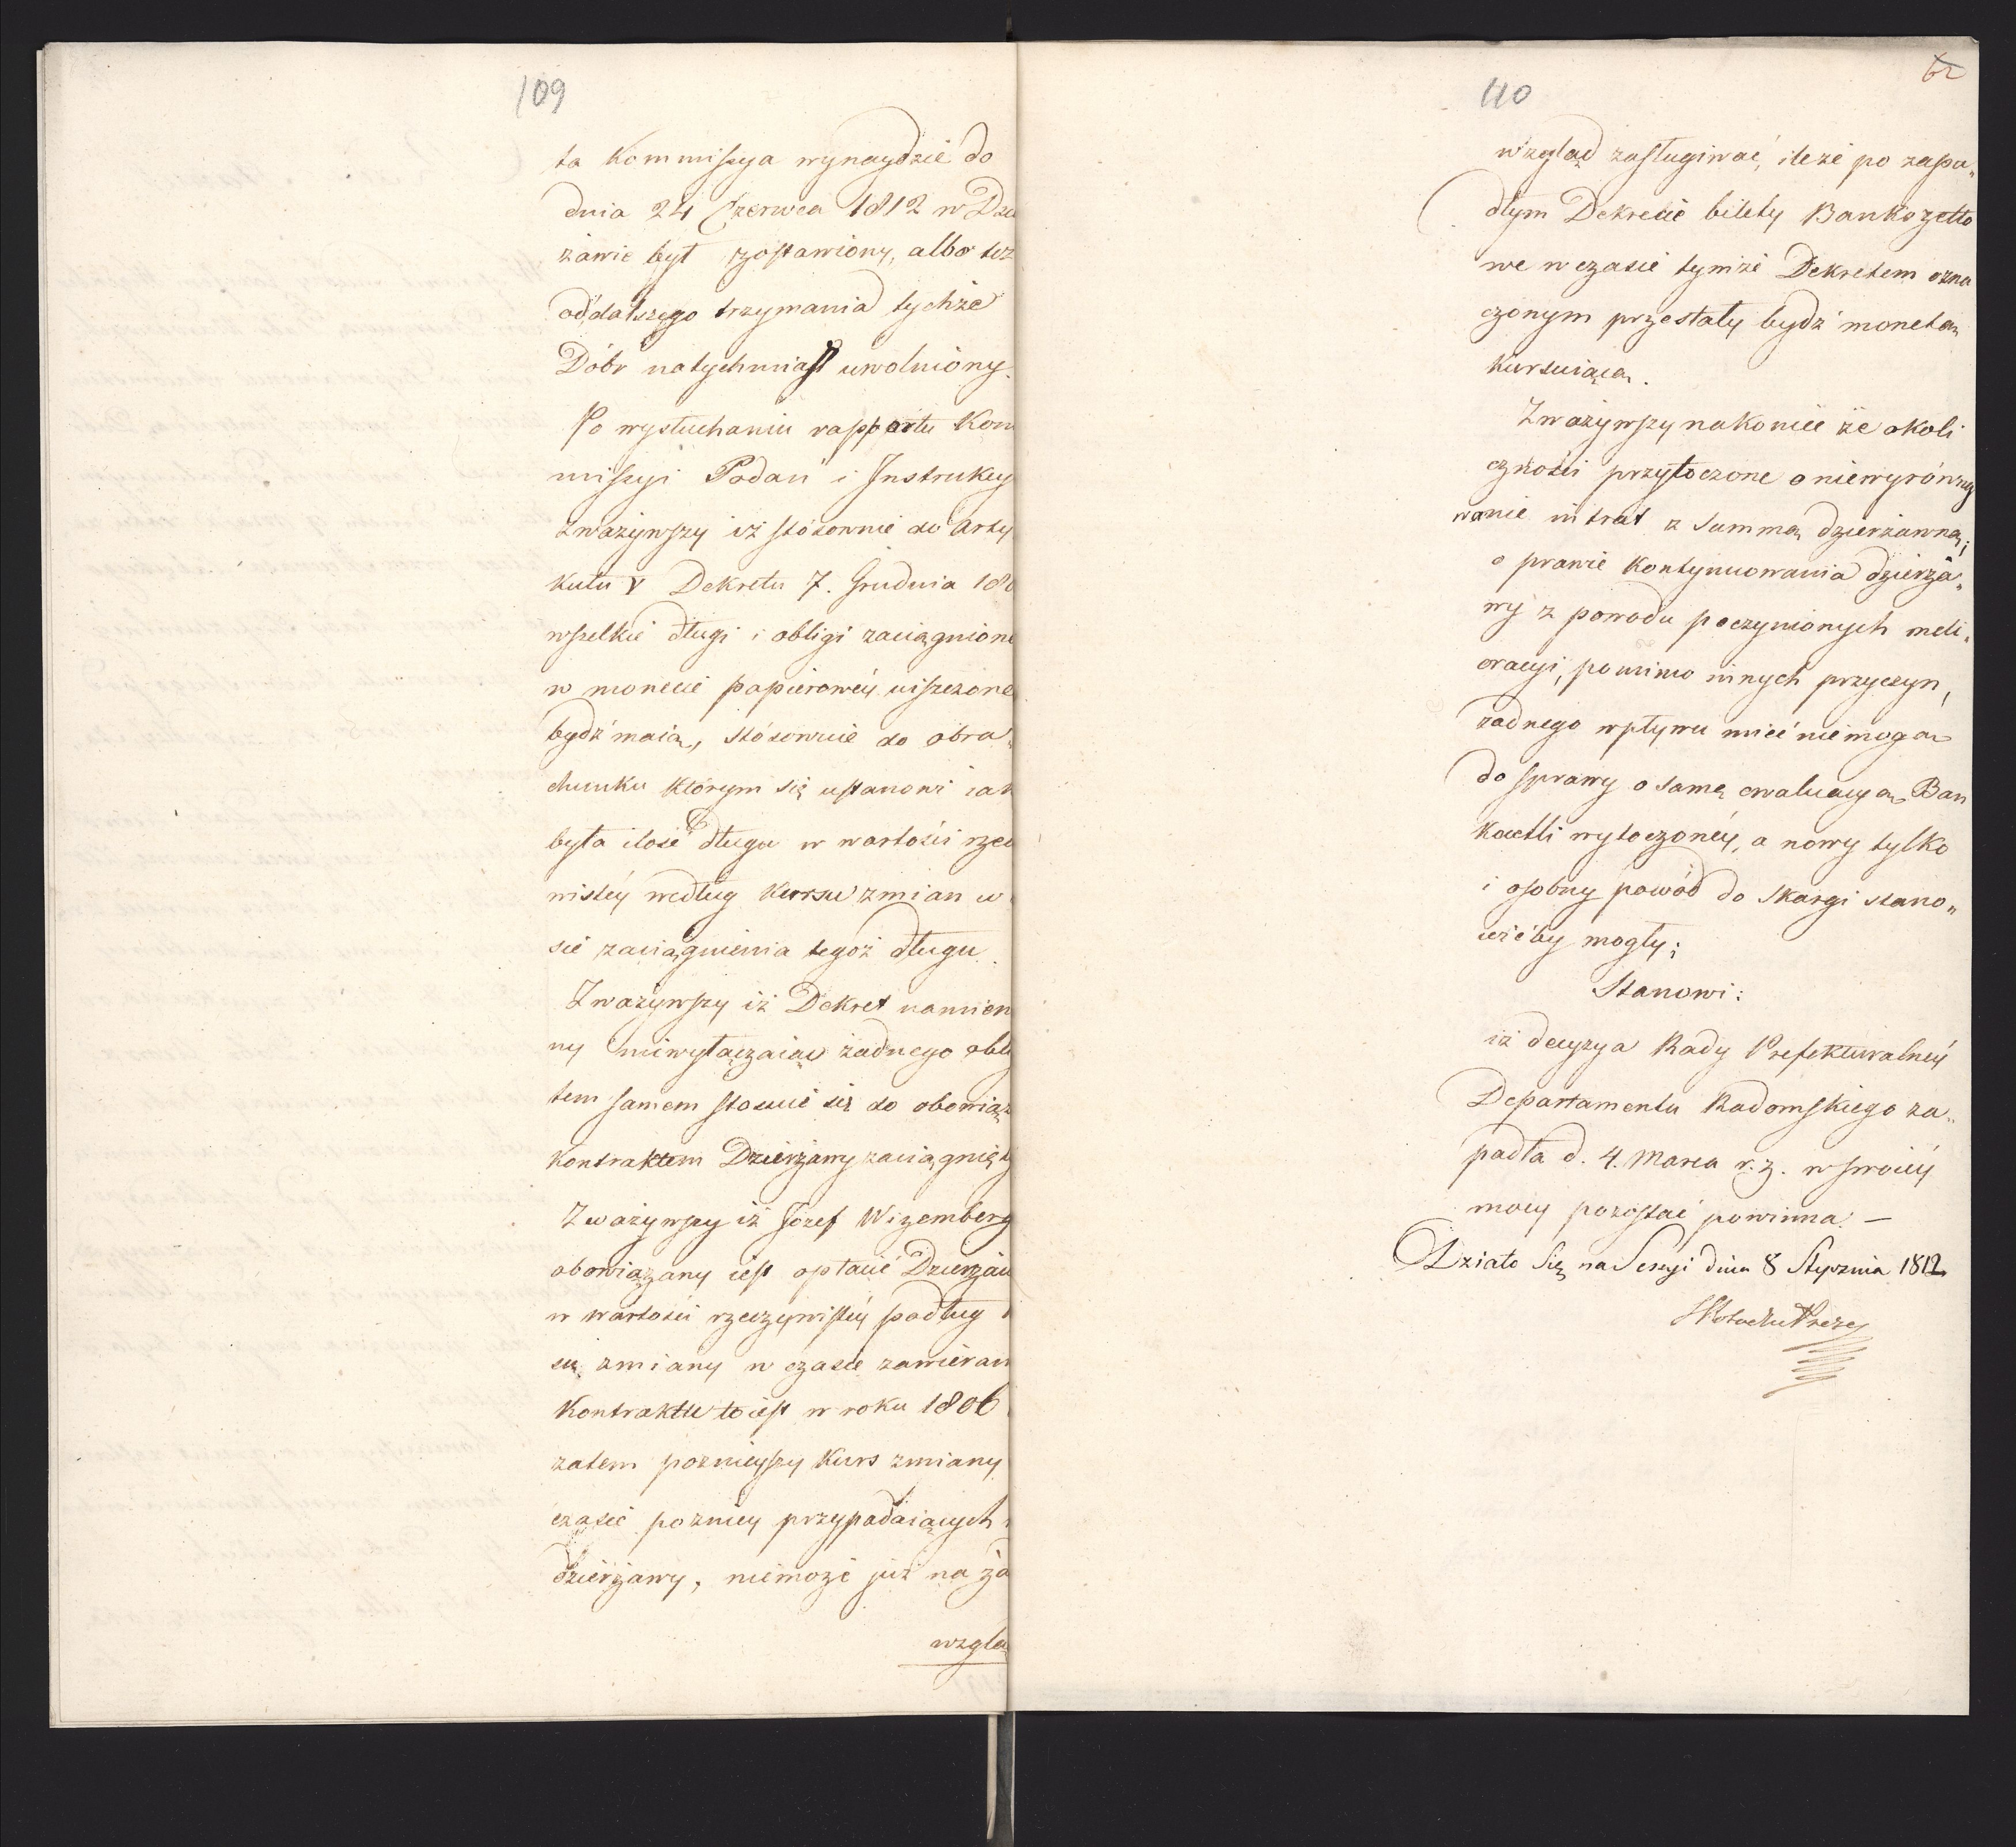 109
ta Kommissya wynaydzie do
dnia 24 Czerwca 1812 w Dzie
żawie był zostawiony, albo też
od dalszego trzymania tychże
Dóbr natychmiast uwolniony.
Po wysłuchaniu rapportu Kom
missyi Podań i Instrukcy
zważywszy iż stósownie do Arty
kułu V Dekretu 7. Grudnia 180
wszelkie długi i obligi zaciągnione
w monecie papierowéy uiszczone
bydź maią, stósownie do obra„
chunku którym się ustanowi iak
była ilość długu w wartości rzec
wistéy według Kursu zmian w
sie zaciągnienia tegoż długu.
Zważywszy iż Dekret namien
ny niewyłączaiąc żadnego obli
tem samem stosuie się do obowiąz
kontraktem Dzierżawy zaciągnięty
Zważywszy iż Józef Wizemberg
obowiązany iest opłacić Dzierżaw
w wartości rzeczywistéy podług
su zmiany w czasie zawieran
Kontraktu to iest w roku 1806
zatem poznieyszy Kurs zmiany
czasie pozniey przypadaiących
dzierżawy, niemoże już na ża
wzglą
110
62
wzgląd zasługiwać, ileże po zapa„
dłym Dekrecie bilety Bankozetlo
we w czasie tymże Dekretem ozna
czonym przestały bydź monetą
kursuiącą.
Zważywszy nakoniec że okoli
czności przytoczone o niewyrówny
wanie intrat z summą dzierżawną;
o prawie kontynuowania dzierża„
wy z powodu poczynionych meli„
oracyi, pomimo innych przyczyn,
żadnego wpływu mieć niemogą
do sprawy o samę ewaluacyą Ban
kocetli wytoczonéy, a nowy tylko
i osobny powód do skargi stano„
wić by mogły;
Stanowi:
iż decyzya Rady Prefekturalnéy
Departamentu Radomskiego za„
padła d. 4. Marca r. z. w swoiéy
mocy pozostać powinna. —
Działo Się na Sessyi dnia 8 Stycznia 1812